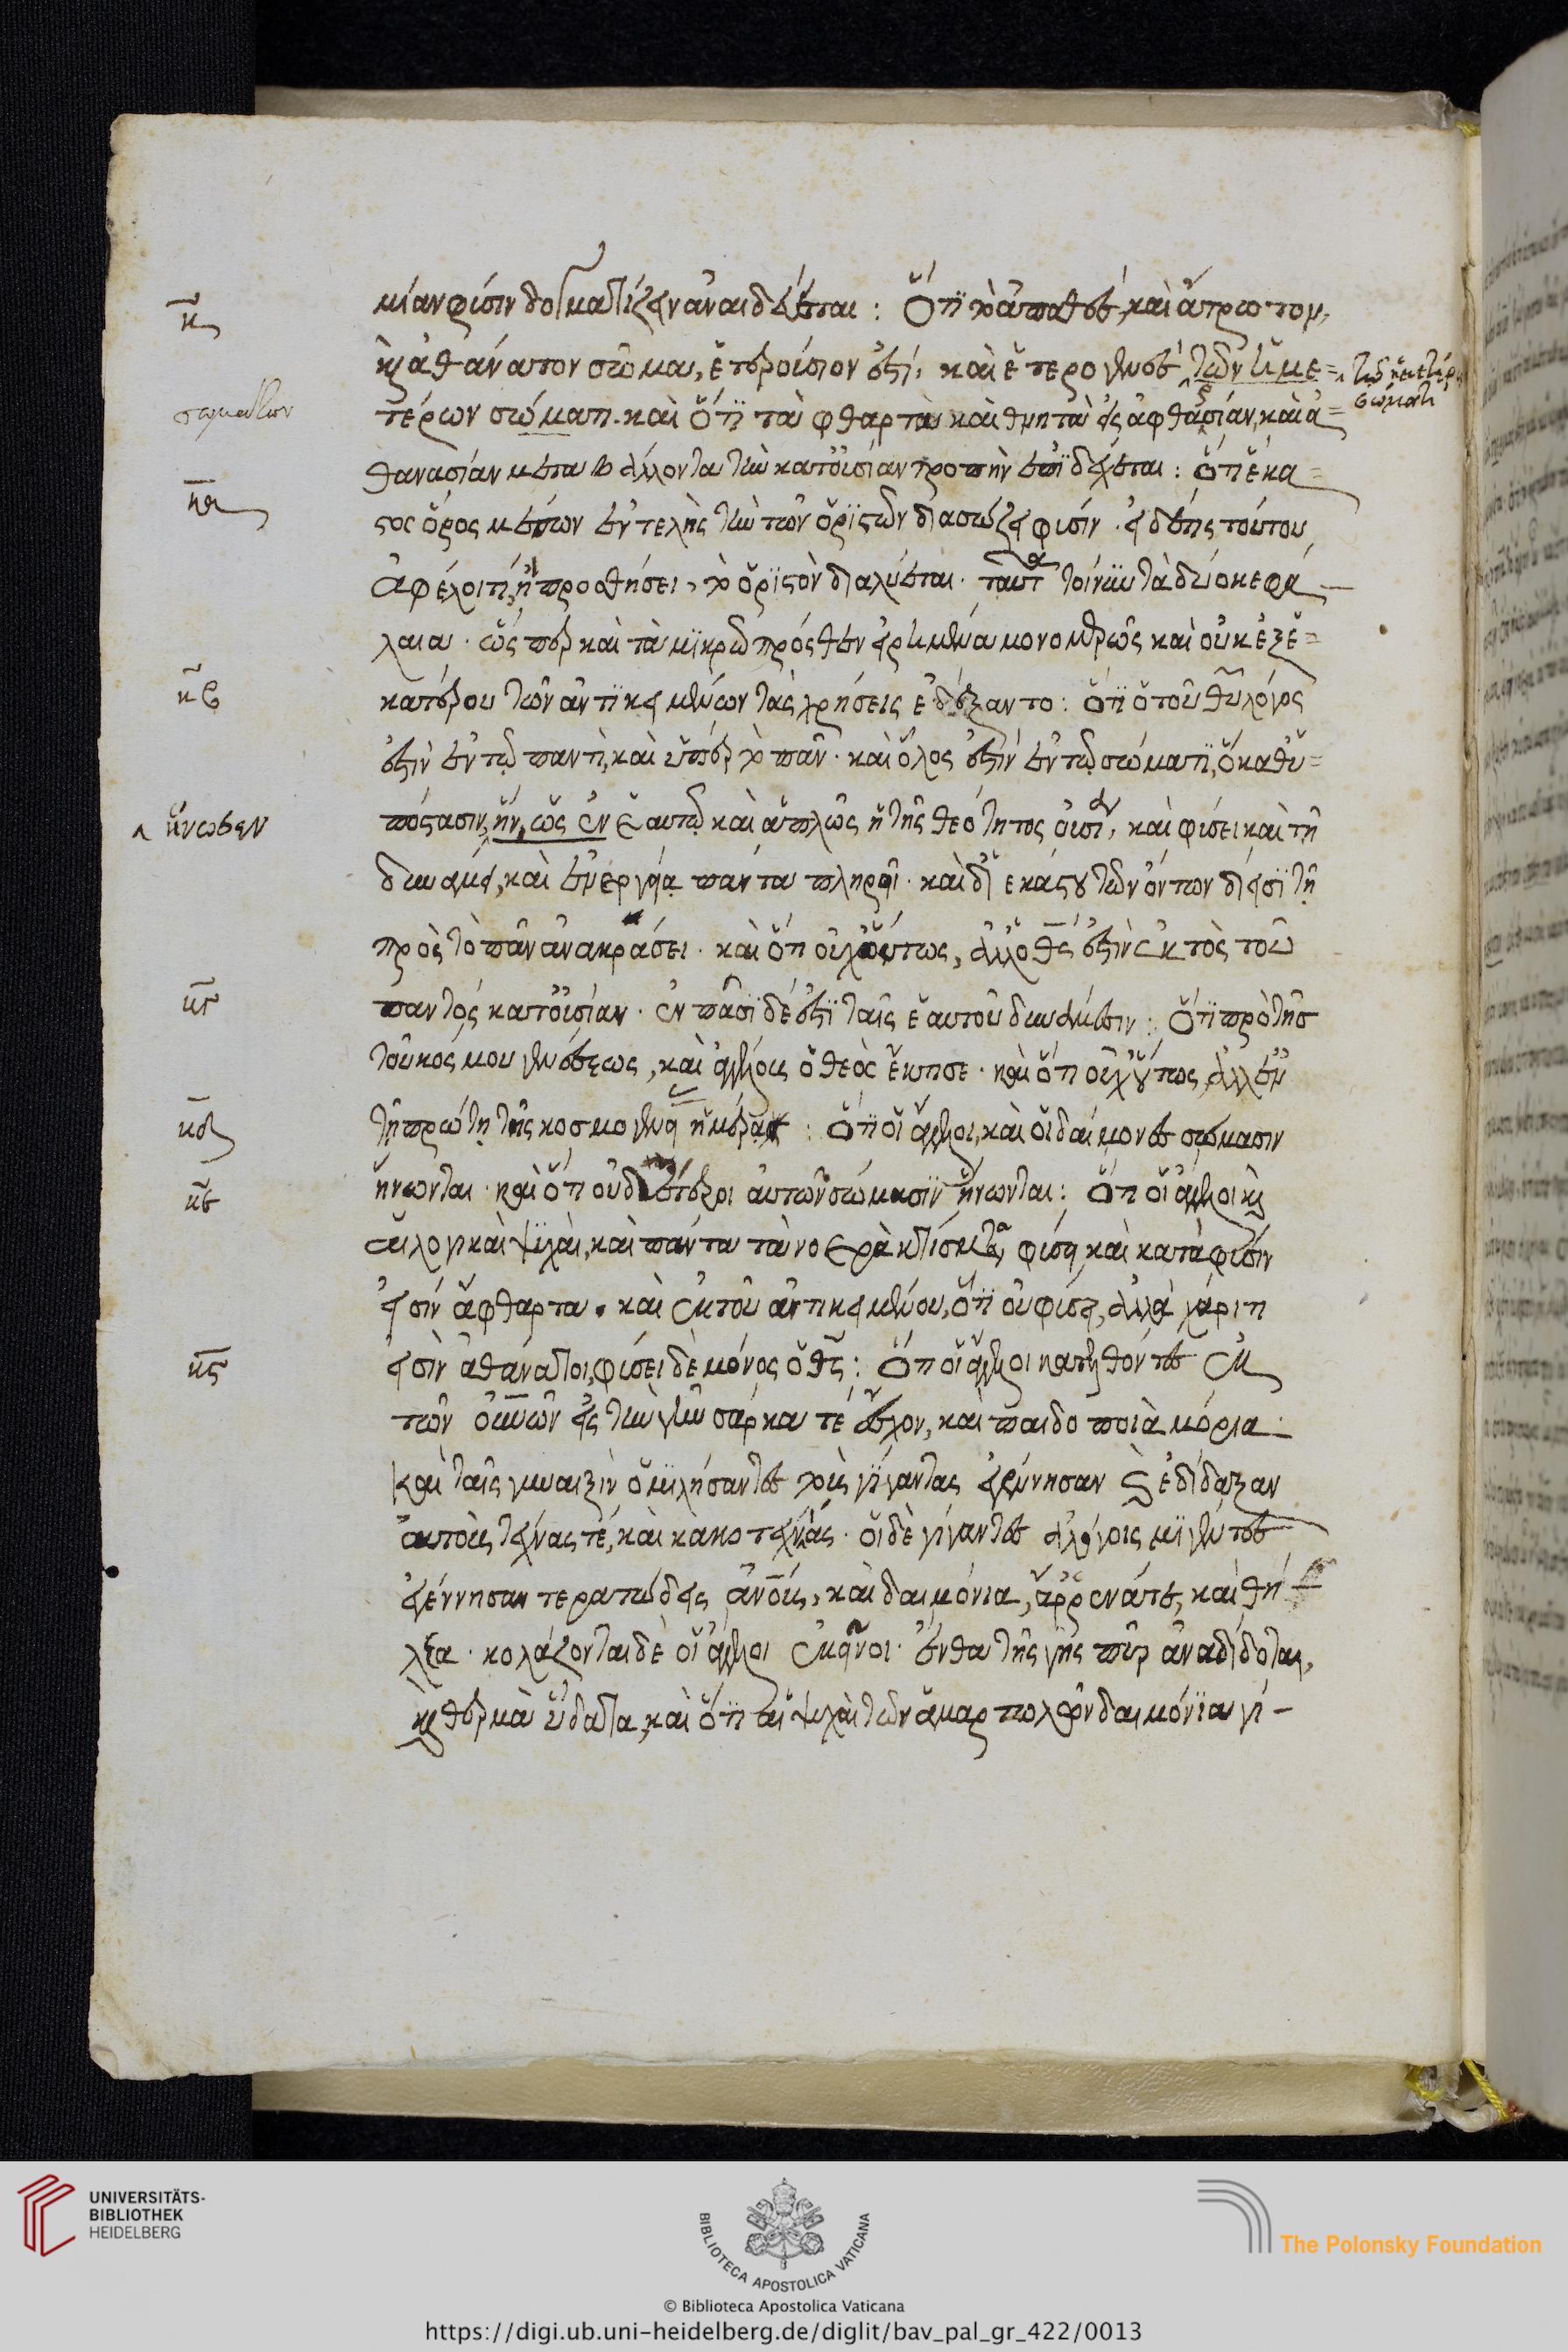 κ
μίαν φύσιν δογματίζειν ἀναιδεύεται : Ὅτι τὸ ἀπαθὲς, καὶ ἄτρωτον,
καὶ ἀθάνατον σῶμα, ἑτεροούσιον ἐστί, καὶ ἑτερογενὲς τῶν ἡμε=
τῶ ἡμετέρω
σώματι
σωμάτων
τέρων σώματι. καὶ ὅτι τὰ φθαρτὰ καὶ θνητὰ εἰς ἀφθαρσίαν, καὶ ἀ=
θανασίαν μεταβάλλοντα τὴν κατ' οὐσίαν τροπὴν ἐπιδέχεται : ὅτι ἕκα=
κα
στος ὅρος μὲν ὢν ἐντελὴς τὴν τῶν ὁριστῶν διασώζει φύσιν. εἰ δέ τις τούτου
ἀφέλοι τί, ἢ προσθήσει, τὸ ὁριστὸν διαλύεται. ταῦτα τοίνυν τὰ δύο κεφά
λαια. ὥσπερ καὶ τὰ μικρῶ πρόσθεν εἰρημένα μονομερῶς καὶ οὐκ ἐξ ἑ=
κβ
κατέρου τῶν ἀντικειμένων τὰς χρήσεις ἐδέξαντο : ὅτι ὁ τοῦ θυ λόγος
ἐστὶν ἐν τῷ παντὶ, καὶ ὑπὲρ τὸ πᾶν. καὶ ὅλος ἐστὶν ἐν τῷ σώματι, ὃ καθ' ὑ=
ἥνωσεν
πόστασιν, ἦν, ὡς ἐν ἑαυτῷ καὶ ἁπλῶς ἡ τῆς θεότητος οὐσία, καὶ φύσει καὶ τῇ
δυνάμει, καὶ ἐνεργείᾳ πάντα πληροῖ. καὶ δι' ἑκάστου τῶν ὄντων δίεισι τῇ
πρὸς τὸ πᾶν ἀνακράσει. καὶ ὅτι οὐχ οὕτως, ἀλλ' ὁ θς ἐστὶν ἐκτὸς τοῦ
κγ
παντός κατ' οὐσίαν. ἐν πᾶσι δέ ἐστι ταῖς ἑαυτοῦ δυνάμεσιν : Ὅτι πρὸ τῆς
τοῦ κόσμου γενέσεως, καὶ ἀγγέλους ὁ θεὸς ἔκτισε. καὶ ὅτι οὐχ οὕτως, ἀλλ' ἐν
κδ
τῇ πρώτῃ τῆς κοσμογενείας ἡμέρας : Ὅτι οἱ ἄγγελοι, καὶ οἱ δαίμονες σώμασιν
κε
ἥνωνται. καὶ ὅτι οὐδέτεροι αὐτῶν σώμασιν ἥνωνται : Ὅτι οἱ ἄγγελοι καὶ
αἱ λογικαὶ ψυχαὶ, καὶ πάντα τὰ νοερὰ κτίσματα, φύσει καὶ κατὰ φύσιν
εἰσὶν ἄφθαρτα. καὶ ἐκ τοῦ ἀντικειμένου, ὅτι οὐ φύσει, ἀλλὰ χάριτι
κς
εἰσὶν ἀθάνατοι, φύσει δὲ μόνος ὁ θς : Ὅτι οἱ ἄγγελοι κατελθόντες ἐκ
τῶν οὐνῶν εἰς τὴν γῆν σάρκα τέ ἔσχον, καὶ παιδοποιὰ μόρια.
Καὶ ταῖς γυναιξὶν ὁμιλήσαντες τοὺς γίγαντας ἐγέννησαν καὶ ἐδίδαξαν
αὐτοὺς τέχνας τέ, καὶ κακοτεχνίας. οἱ δὲ γίγαντες ἀλόγοις μιγέντες
ἐγέννησαν τερατώδεις ἀνους, καὶ δαιμόνια, ἄρρενά τε, καὶ θή
λεα. κολάζονται δὲ οἱ ἄγγελοι ἐκεῖνοι. ἔνθα τῆς γῆς πῦρ ἀναδίδοται,
καὶ θερμὰ ὕδατα, καὶ ὅτι αἱ ψυχαὶ τῶν ἁμαρτωλῶν δαιμόνια γί-
UNIVERSITÄTS-
BIBLIOTHEK
HEIDELBERG
BIBLIOTECA APOSTOLICA VATICANA
The Polonsky Foundation
© Biblioteca Apostolica Vaticana
https://digi.ub.uni-heidelberg.de/diglit/bav_pal_gr_422/0013